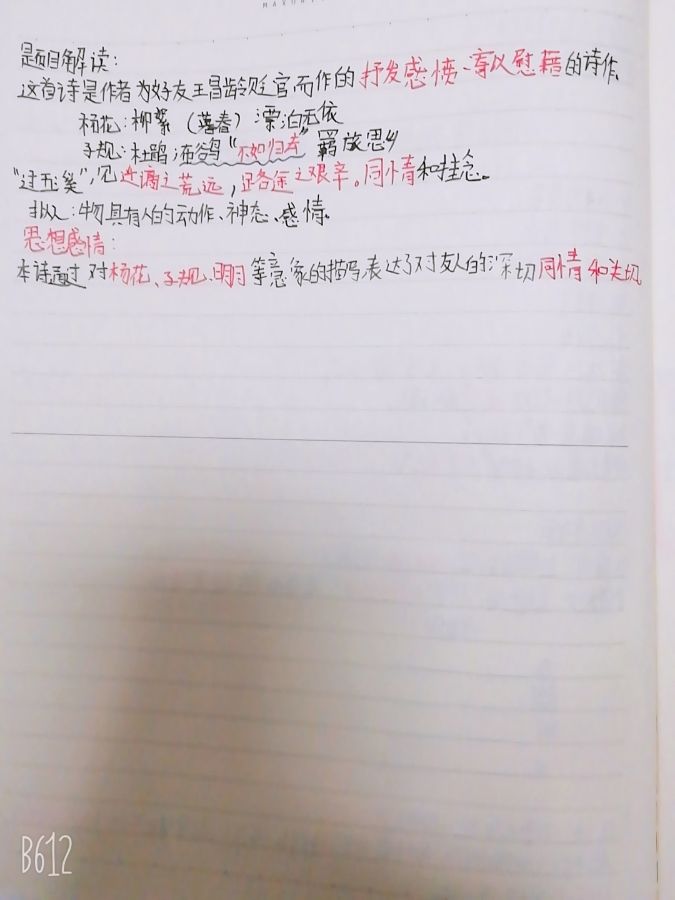 题目解读:
这首诗是作者为好友王昌龄贬官而作的抒发感愤、寄以慰藉的诗作
杨花:柳絮(暮春)漂泊无依
子规:杜鹃 布谷鸟“不如归去”羁旅思乡
“过五溪”,见迁谪之荒远,足路途之艰辛。同情和挂念。
拟人:物具有人的动作、神态、感情。
思想感情:
本诗通过对杨花、子规、明月等意象的描写,表达了对友人的深切同情和关切。
B612